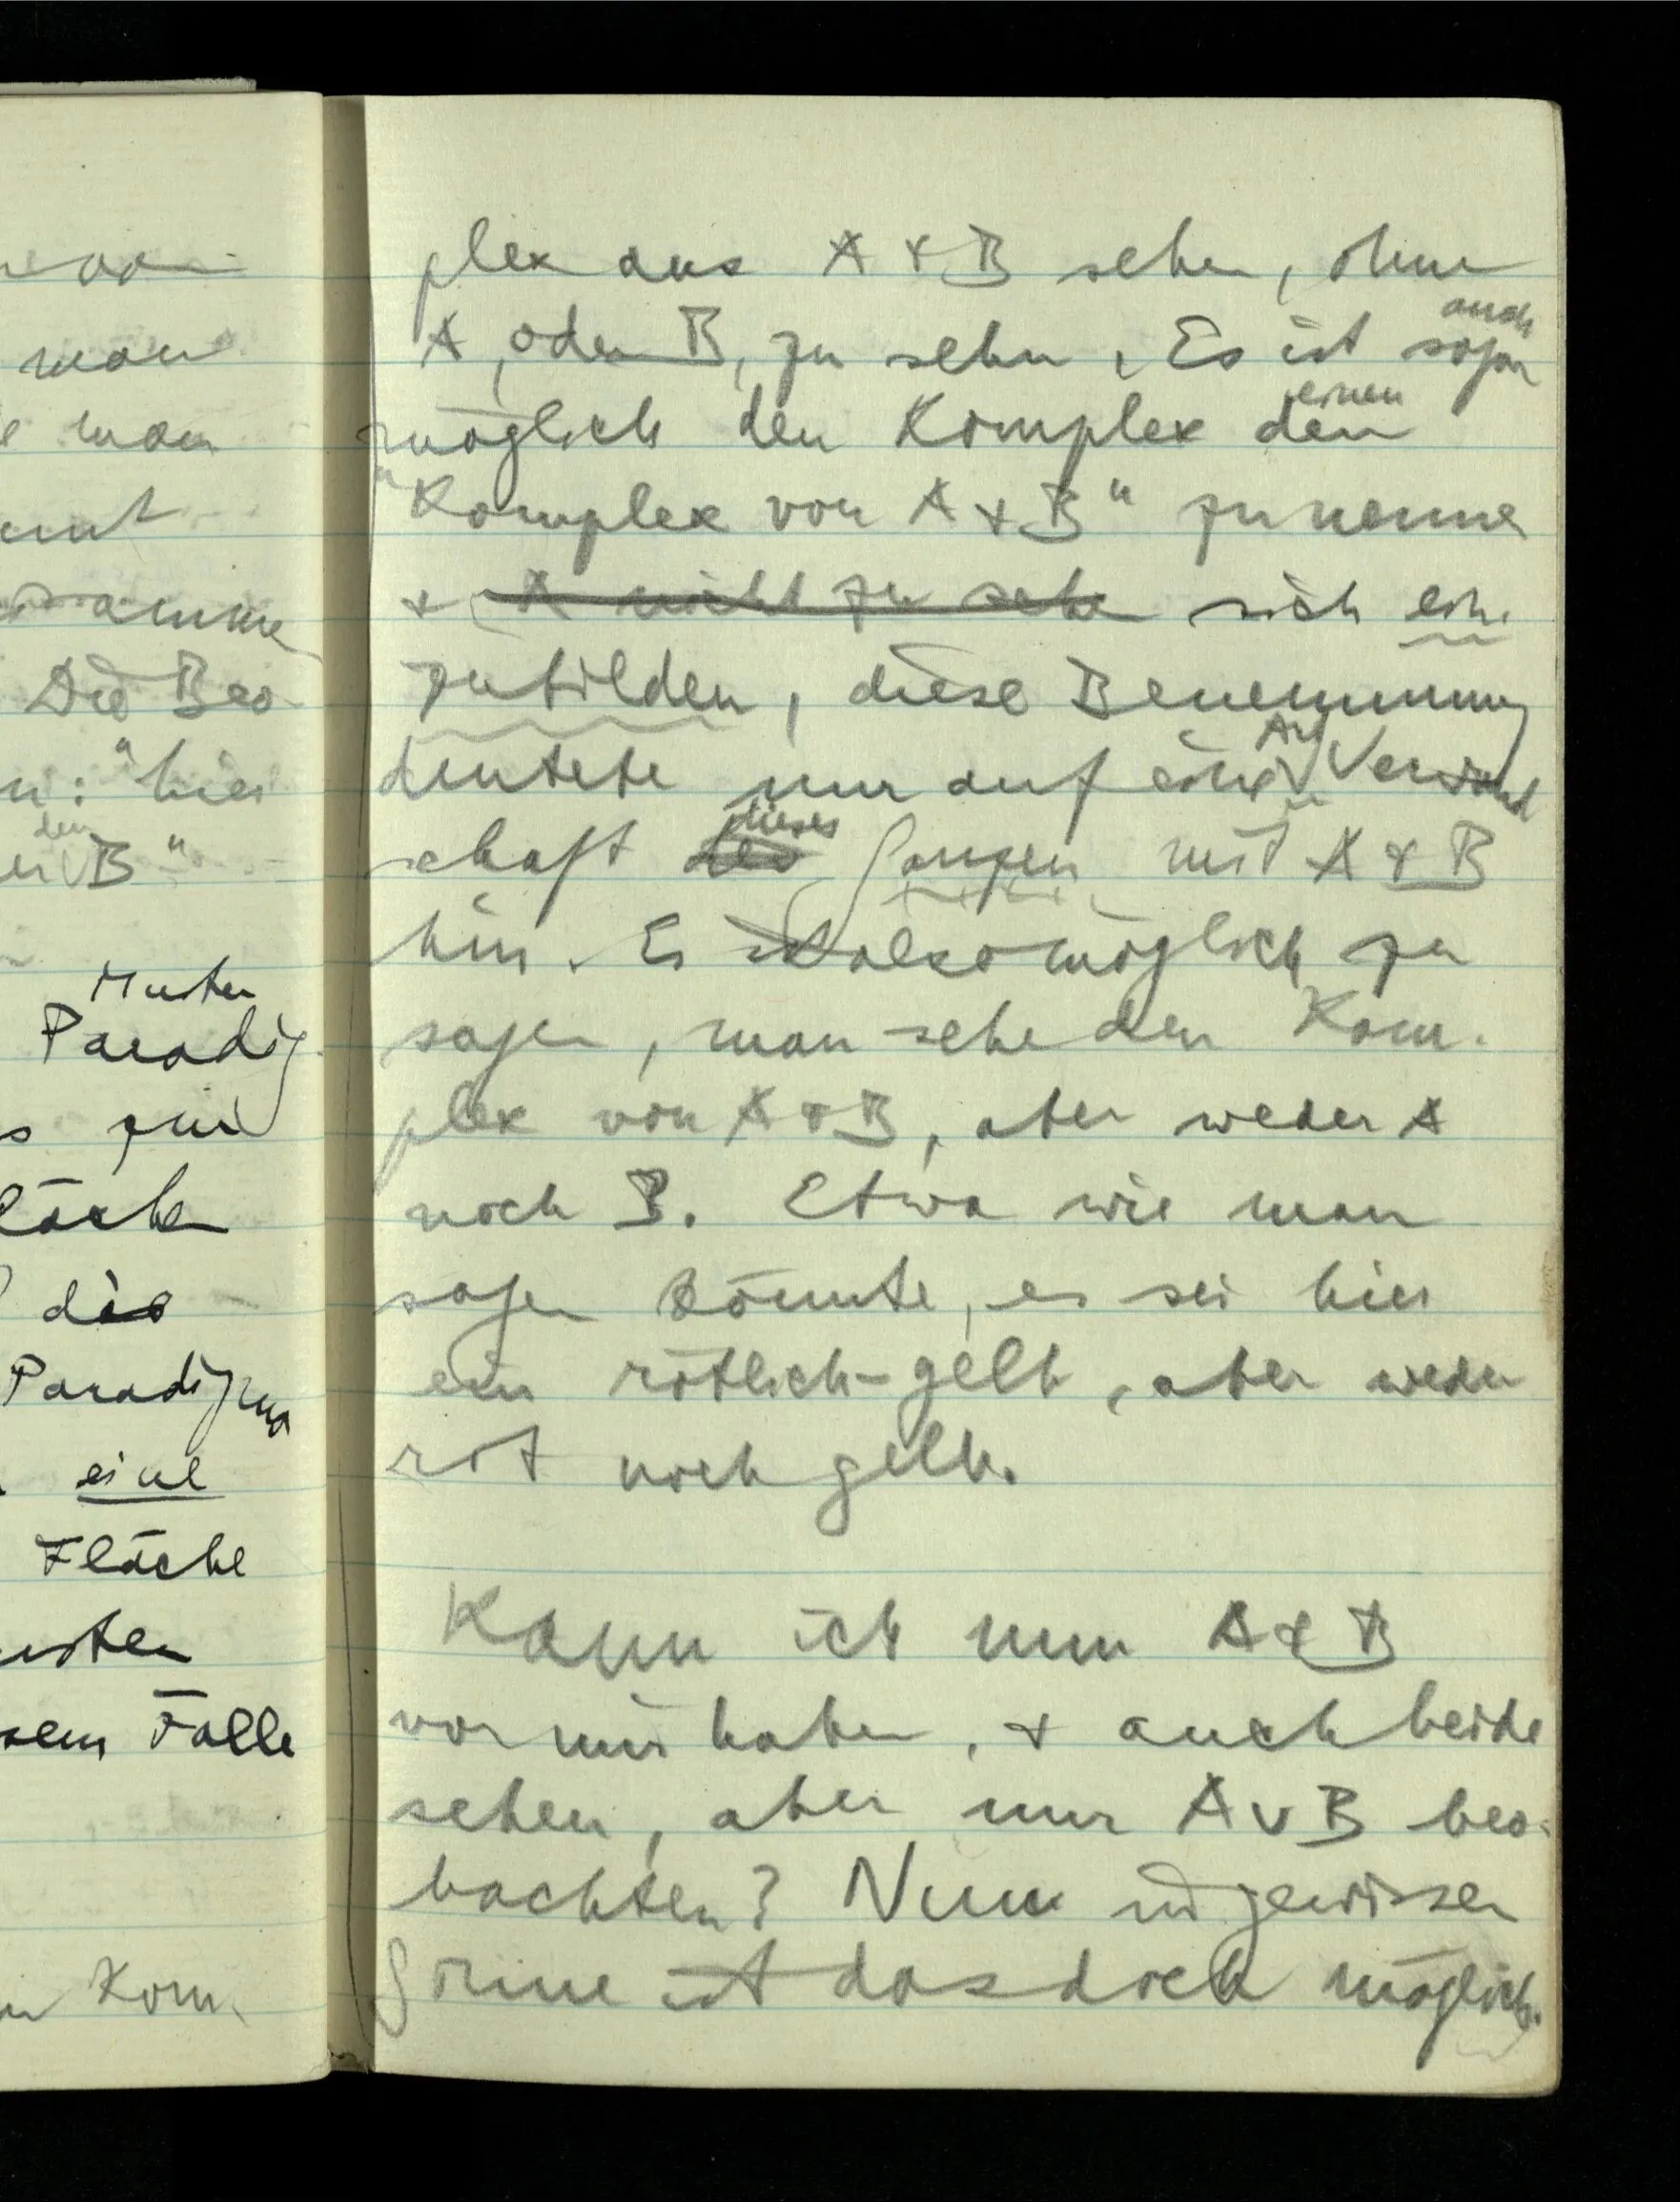 von
man
man
Die Beo-
: "hier
den
B"
Muster
Paradig
die
Paradigma
eine
Fläche
Falle
Kom-
plex aus A & B sehen, ohne
auch
A, oder B, zu sehn. Es ist sogar
einen
möglich den Komplex den
"Komplex von A & B" zu nennen
& A nicht zu sehn sich ein-
zubilden, diese Benennung
Art
deutete nur auf eine Verwandt
dieses
schaft des Ganzen mit A & B
hin. Es ist also möglich zu
sagen, man sehe den Kom-
plex von A & B, aber weder A
noch B. Etwa wie man
sagen könnte, es sei hier
ein rötlich-gelb, aber weder
rot noch gelb.
Kann ich nun A & B
vor mir haben, & auch beide
sehen, aber nur A v B beo-
bachten? Nun in gewissem
Sinne ist das doch möglich.